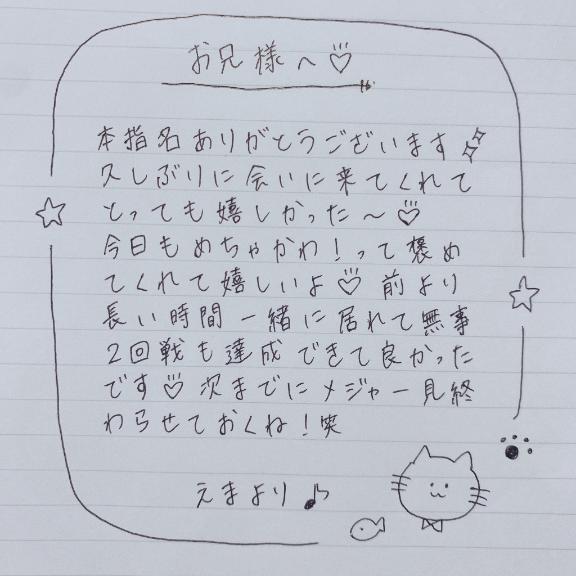 お兄様へ♡
本指名ありがとうございます
久しぶりに会いに来てくれて
とっても嬉しかった〜♡
今日もめちゃかわ！って褒め
てくれて嬉しいよ♡ 前より
長い時間一緒に居れて無事
2回戦も達成できて良かった
です♡ 次までにメジャー見終
わらせておくね！笑
えまより♪